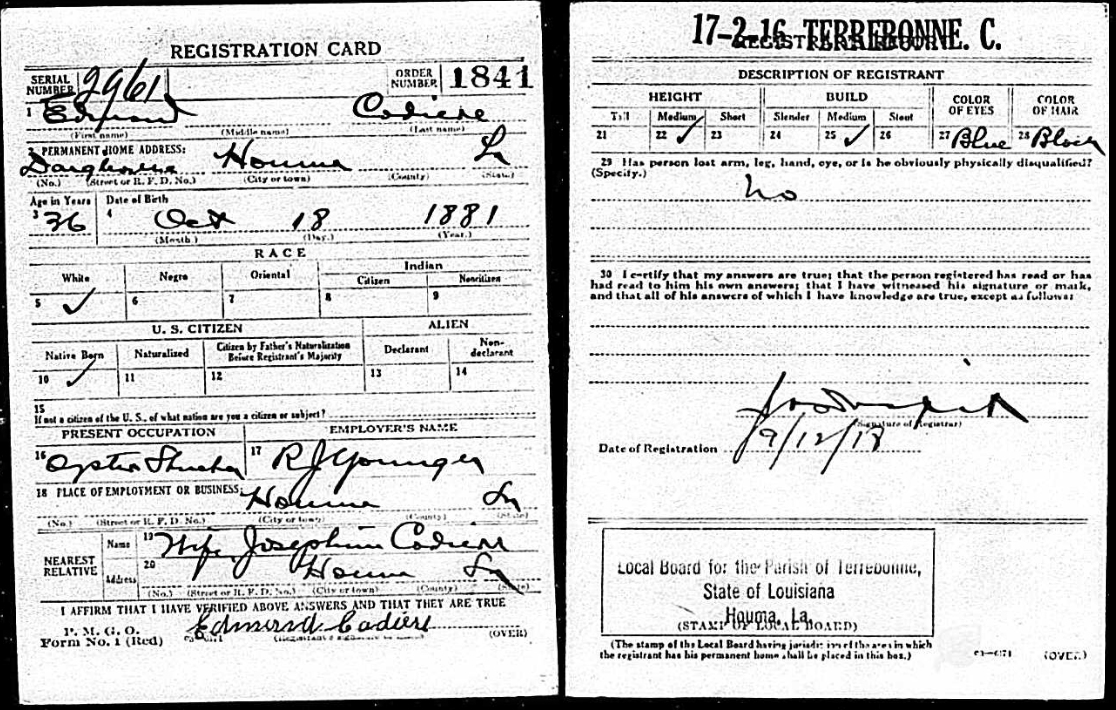 REGISTRATION CARD
SERIAL NUMBER 2961 ORDER NUMBER 1841
1 Edmond Codiere
(First name) (Middle name) (Last name)
2 PERMANENT HOME ADDRESS:
Houma La
(No.) (Street or R. F. D. No.) (City or town) (County) (State)
Age in Years Date of Birth
3 36 4 Oct 18 1881
(Month.) (Day.) (Year.)
RACE
White Negro Oriental Indian
Citizen Noncitizen
5 ✓ 6 7 8 9
U. S. CITIZEN ALIEN
Native Born Naturalized Citizen by Father's Naturalization Before Registrant's Majority Declarant Non-declarant
10 ✓ 11 12 13 14
15
If not a citizen of the U. S., of what nation are you a citizen or subject?
PRESENT OCCUPATION EMPLOYER'S NAME
16 Oyster Shucker 17 R J Younger
18 PLACE OF EMPLOYMENT OR BUSINESS:
Houma La
(No.) (Street or R. F. D. No.) (City or town) (County) (State)
NEAREST RELATIVE
Name 19 Wife, Josephine Codiere
Address 20 Houma La
(No.) (Street or R. F. D. No.) (City or town) (County) (State)
I AFFIRM THAT I HAVE VERIFIED ABOVE ANSWERS AND THAT THEY ARE TRUE
P. M. G. O.
Form No. 1 (Red) Edmond Codiere (OVER)
17-2-16 TERREBONNE. C.
REGISTRAR'S REPORT
DESCRIPTION OF REGISTRANT
HEIGHT BUILD COLOR OF EYES COLOR OF HAIR
Tall Medium Short Slender Medium Stout
21 22 ✓ 23 24 25 ✓ 26 27 Blue 28 Black
29 Has person lost arm, leg, hand, eye, or is he obviously physically disqualified?
(Specify.) no
30 I certify that my answers are true; that the person registered has read or has
had read to him his own answers; that I have witnessed his signature or mark,
and that all of his answers of which I have knowledge are true, except as follows:
(Signature of Registrar)
Date of Registration 9/12/18
Local Board for the Parish of Terrebonne,
State of Louisiana
Houma, La.
(STAMP OF LOCAL BOARD)
(The stamp of the Local Board having jurisdiction of the area in which
the registrant has his permanent home shall be placed in this box.)
(OVER)